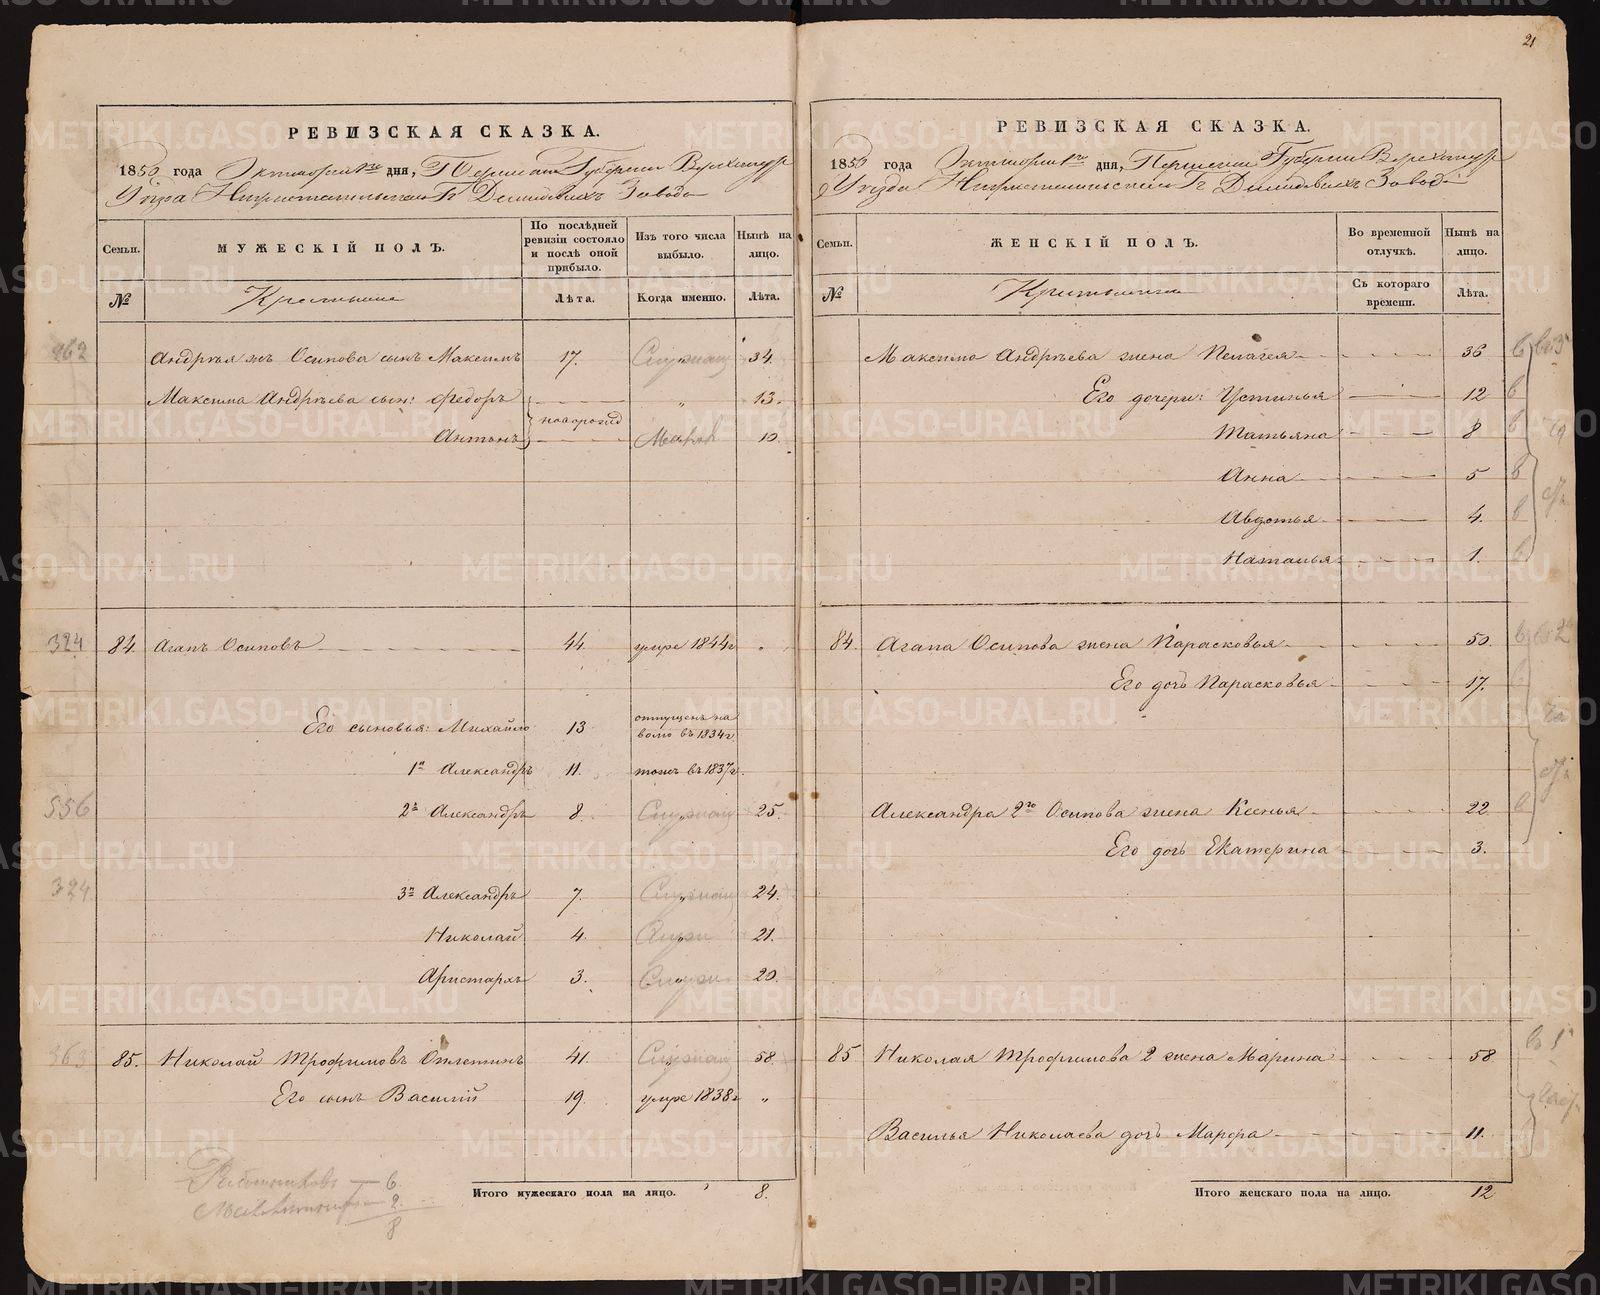 21
РЕВИЗСКАЯ СКАЗКА.
1850 года Октября дня, Пермской Губернии Верхотур
Уезда Нижнетагильскаго Г. Демидовыхъ Завода
Семьи. МУЖЕСКІЙ ПОЛЪ. По послѣдней ревизіи состояло и послѣ оной прибыло. Изъ того числа выбыло. Нынѣ на лицо.
№ Крестьяне Лѣта. Когда именно. Лѣта.
262 Андрея жъ Осипова сынъ Максимъ 17. 34.
Максима Андрѣева сын: Федоръ новорожд „ 13.
Антонъ 10.
324 84. Агапъ Осиповъ 44. умре 1844г „
Его сыновья: Михайло 13 отпущенъ на волю въ 1834г
1й Александръ 11. тожъ въ 1837г.
556 2й Александръ 8. „ 25.
324 3й Александръ 7. „ 24.
Николай 4. „ 21.
Аристархъ 3. „ 20.
363 85. Николай Трофимовъ Отлетинъ 41. „ 58.
Его сынъ Василій 19. умре 1838г „
Итого мужескаго пола на лицо. 8.
Работниковъ — 6.
2.
8
РЕВИЗСКАЯ СКАЗКА.
1850 года Октября дня, Пермской Губерніи Верхотур
Уезда Нижнетагильскаго Г. Демидовыхъ Завода
Семьи. ЖЕНСКІЙ ПОЛЪ. Во временной отлучкѣ. Нынѣ на лицо.
№ Крестьянки Съ котораго времени. Лѣта.
Максима Андрѣева жена Пелагея 36
Его дочери: Устинья 12
Татьяна 8
Анна 5
Авдотья 4.
Наталья 1.
84. Агапа Осипова жена Парасковья 50.
Его дочь Парасковья 17.
Александра 2го Осипова жена Ксенья 22
Его дочь Екатерина 3.
85 Николая Трофимова 2 жена Марина 58
Василья Николаева дочь Марфа 11.
Итого женскаго пола на лицо. 12
METRIKI.GASO-URAL.RU